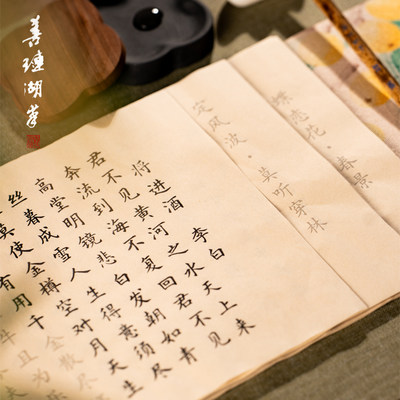 善琏湖笔
蝶恋花·春景
定风波·莫听穿林
将进酒 李白
君不见黄河之水天上来
奔流到海不复回君不见
高堂明镜悲白发朝如青
丝暮成雪人生得意须尽
莫使金樽空对月天生
有用千金散尽
牛且为